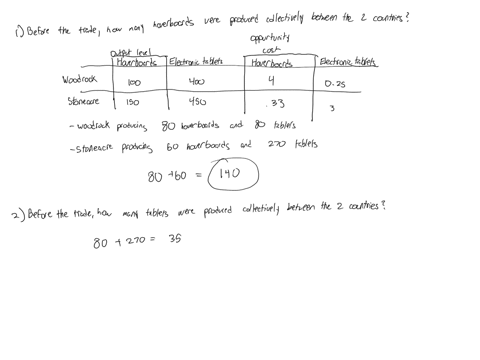 1) Before the trade, how many hoverboards were produced collectively between the 2 countries?
output level opportunity cost
Hoverboards Electronic tablets Hoverboards Electronic tablets
Woodrock 100 400 4 0.25
Stoneacre 150 450 .33 3
- Woodrock producing 80 hoverboards and 80 tablets
- Stoneacre producing 60 hoverboards and 270 tablets
80 + 60 = 140
2) Before the trade, how many tablets were produced collectively between the 2 countries?
80 + 270 = 35